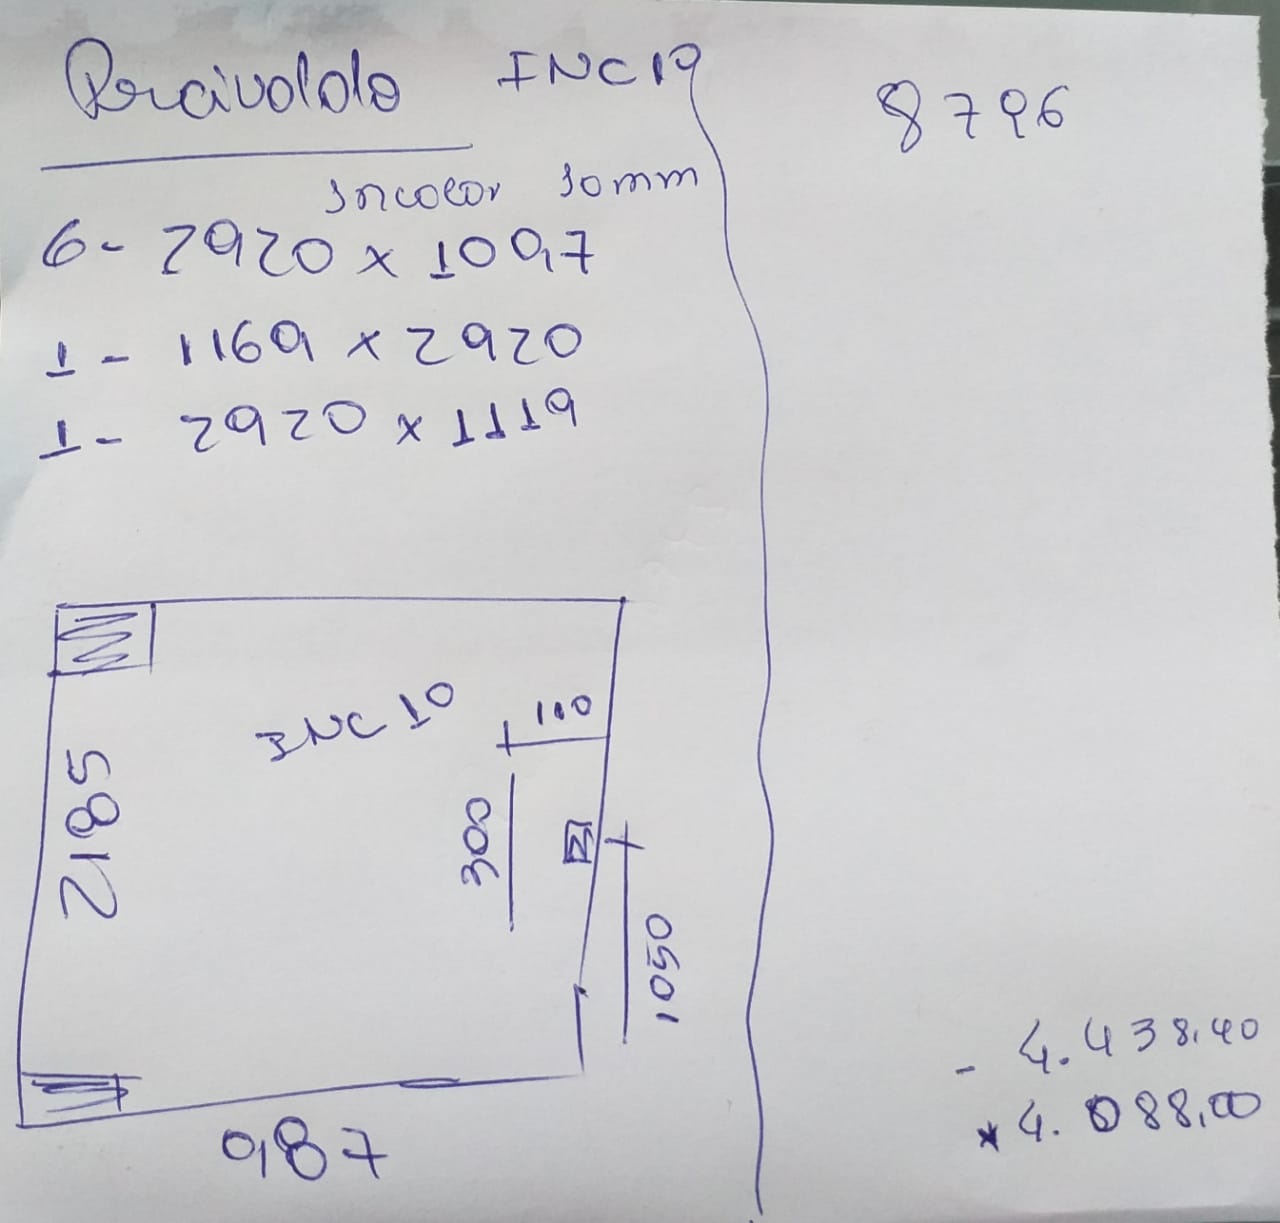 Percivaldo INC19
8796
Incolor 10mm
6- 2920 x 1097
1- 1169 x 2920
1- 2920 x 1119
INC 10
100
2185
300
1050
987
- 4.438,40
* 4.088,00